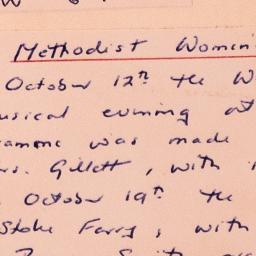 Methodist Women'
October 12th the W
usical evening at
ramme was made
rs. Gillett, with
October 19th the
Stoke Ferry, with